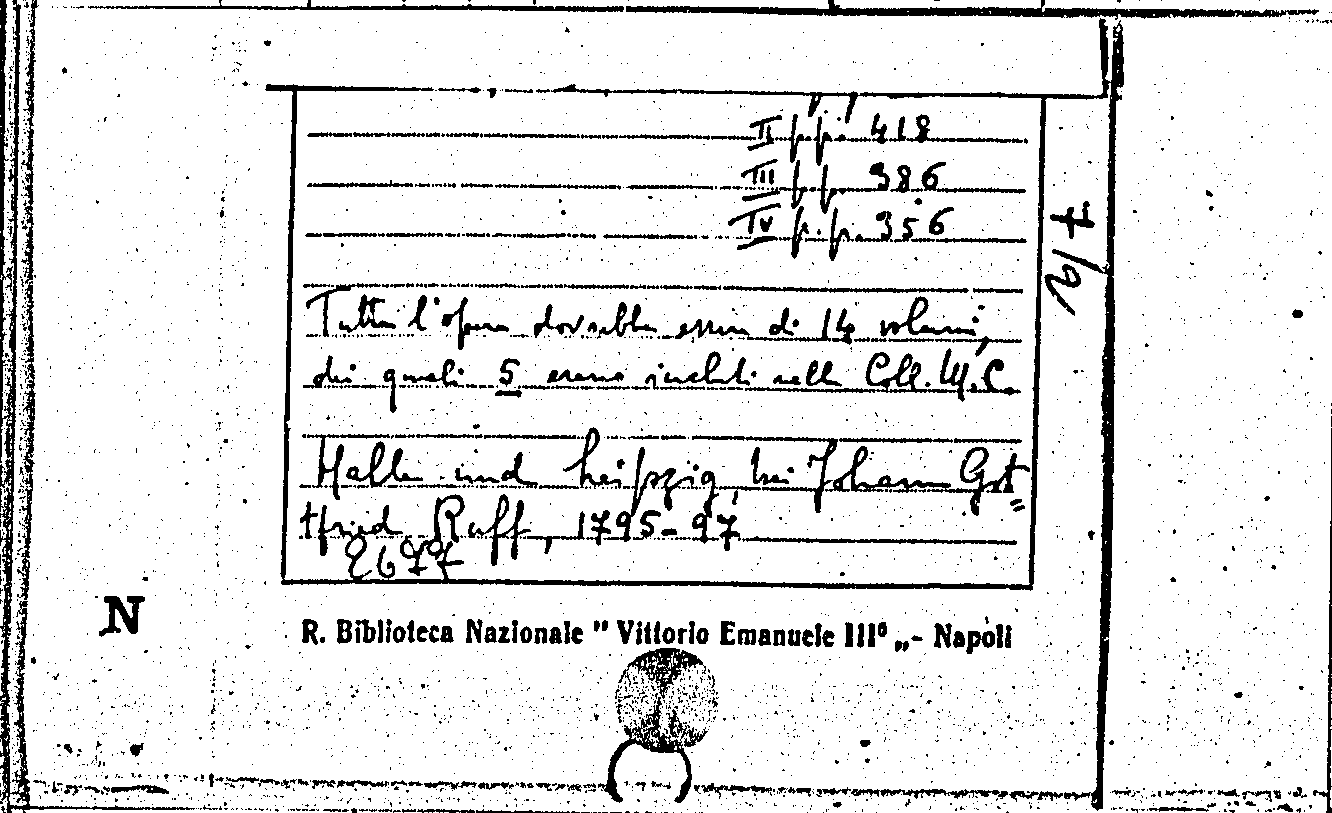 II p.p. 418
III p.p. 386
IV p.p. 356
7/2
Tutta l'opera dovrebbe essere di 14 volumi,
dei quali 5 erano inclusi nella Coll. M. C.
Halle und Leipzig, bei Johann Got=
tfried Ruff, 1795-97
2677
N
R. Biblioteca Nazionale " Vittorio Emanuele III° „- Napoli